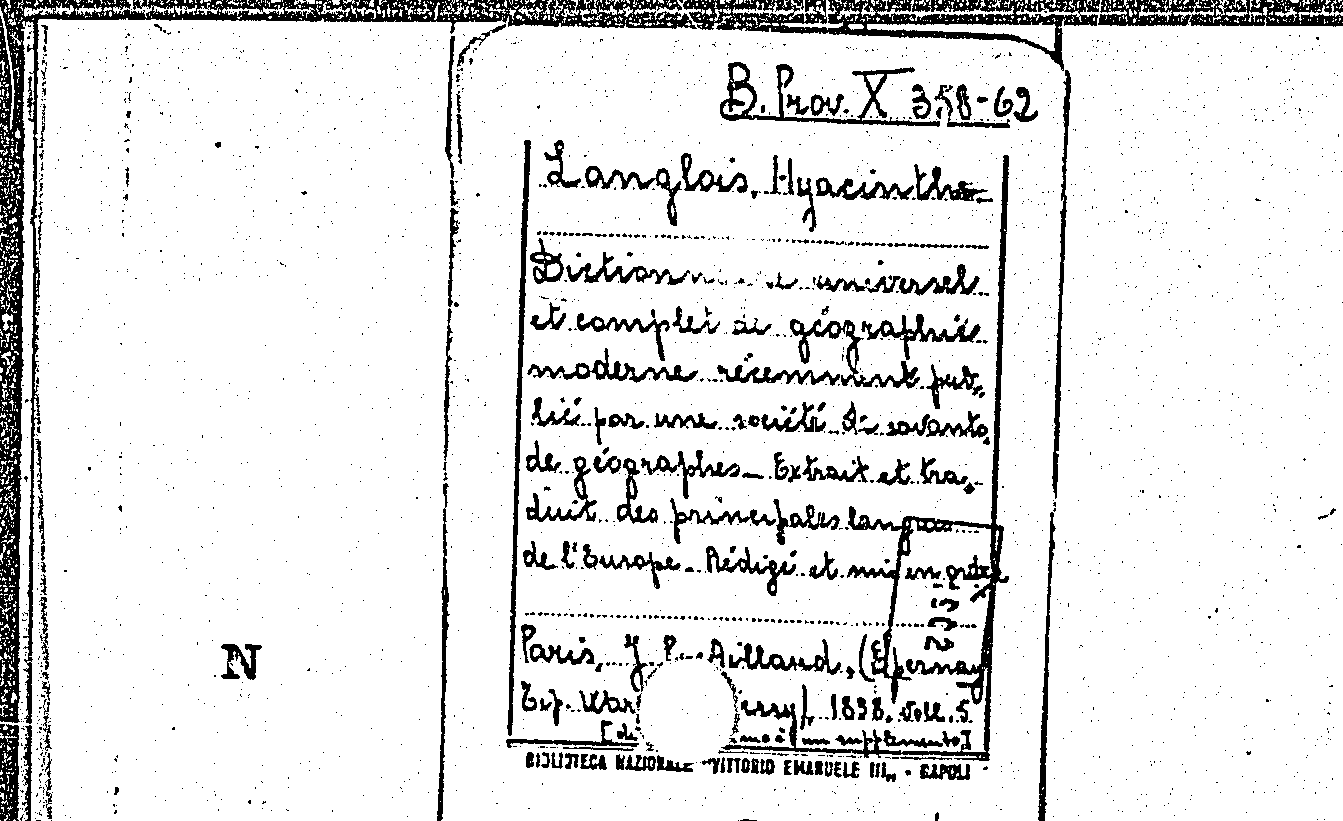 B. Prov. X 358-62
Langlois, Hyacinthe
Dictionnaire universel
et complet de géographie
moderne récemment pub-
lié par une société de savants,
de géographes - Extrait et tra-
duit des principales langues
de l'Europe - Rédigé et mis en ordre
Paris, J. P. Aillaud, (Épernay
Tip. War essy), 1838. voll. 5
un supplemento]
BIBLIOTECA NAZIONALE "VITTORIO EMANUELE III" - NAPOLI
N